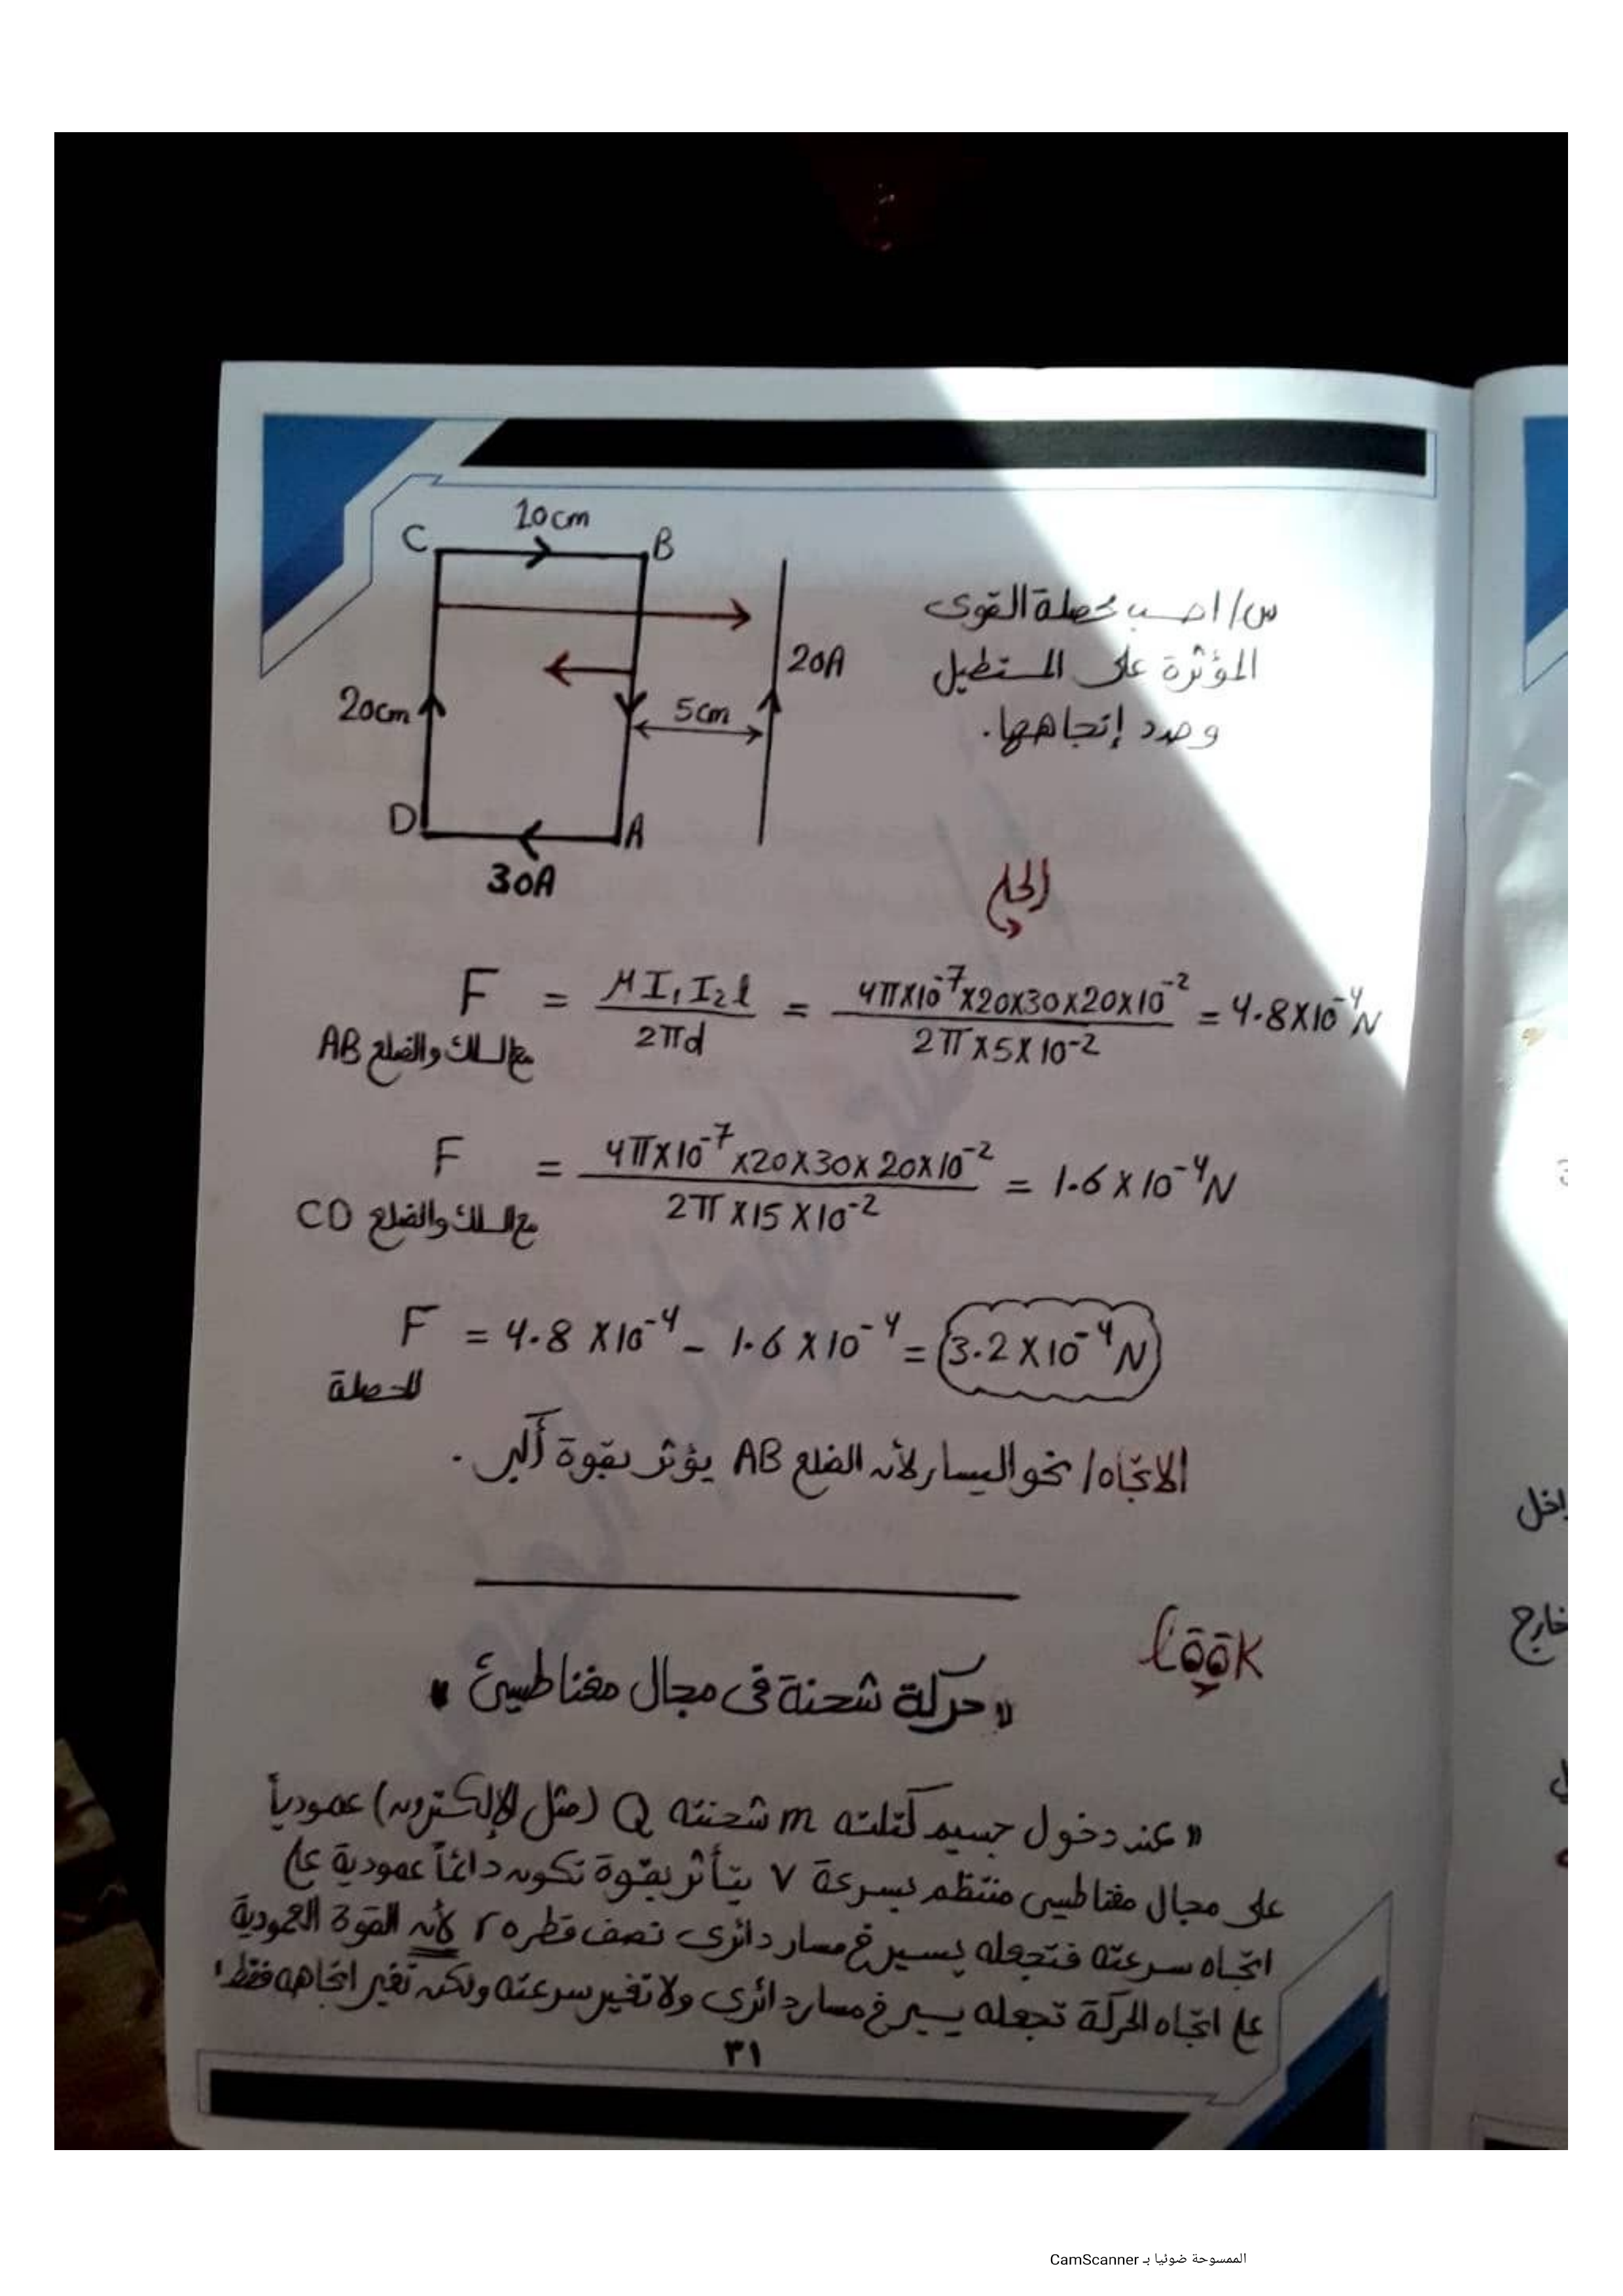 10cm
C
B
س/ احسب محصلة القوى
المؤثرة على المستطيل
وحدد إتجاهها.
20A
20cm
5cm
D
A
30A
الحل
F = μI₁I₂l / 2πd = 4π×10⁻⁷×20×30×20×10⁻² / 2π×5×10⁻² = 4.8×10⁻⁴N
مع السلك والضلع AB
F = 4π×10⁻⁷×20×30×20×10⁻² / 2π×15×10⁻² = 1.6×10⁻⁴N
مع السلك والضلع CD
F = 4.8×10⁻⁴ - 1.6×10⁻⁴ = 3.2×10⁻⁴N
المحصلة
الاتجاه/ نحو اليسار لأن الضلع AB يؤثر بقوة أكبر.
Look
"حركة شحنة فى مجال مغناطيسى"
" عند دخول جسيم كتلته m شحنته Q (مثل الإلكترون) عمودياً
على مجال مغناطيسى منتظم بسرعة v يتأثر بقوة تكون دائماً عمودية على
اتجاه سرعته فتجعله يسير فى مسار دائرى نصف قطره r لأن القوة العمودية
على اتجاه الحركة تجعله يسير فى مسار دائرى ولا تغير سرعته ولكن تغير اتجاهه فقط"
٣١
اخل
خارج
الممسوحة ضوئيا بـ CamScanner